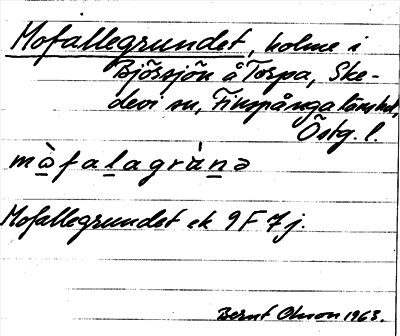 Mofallegrundet, holme i
Björsjön å Torpa, Ske-
devi sn, Finspånga länshd,
Östg. l.
mò̲fal̲agrùn̲ə
Mofallegrundet ek 9F 7j.
Bernt Olsson 1963.